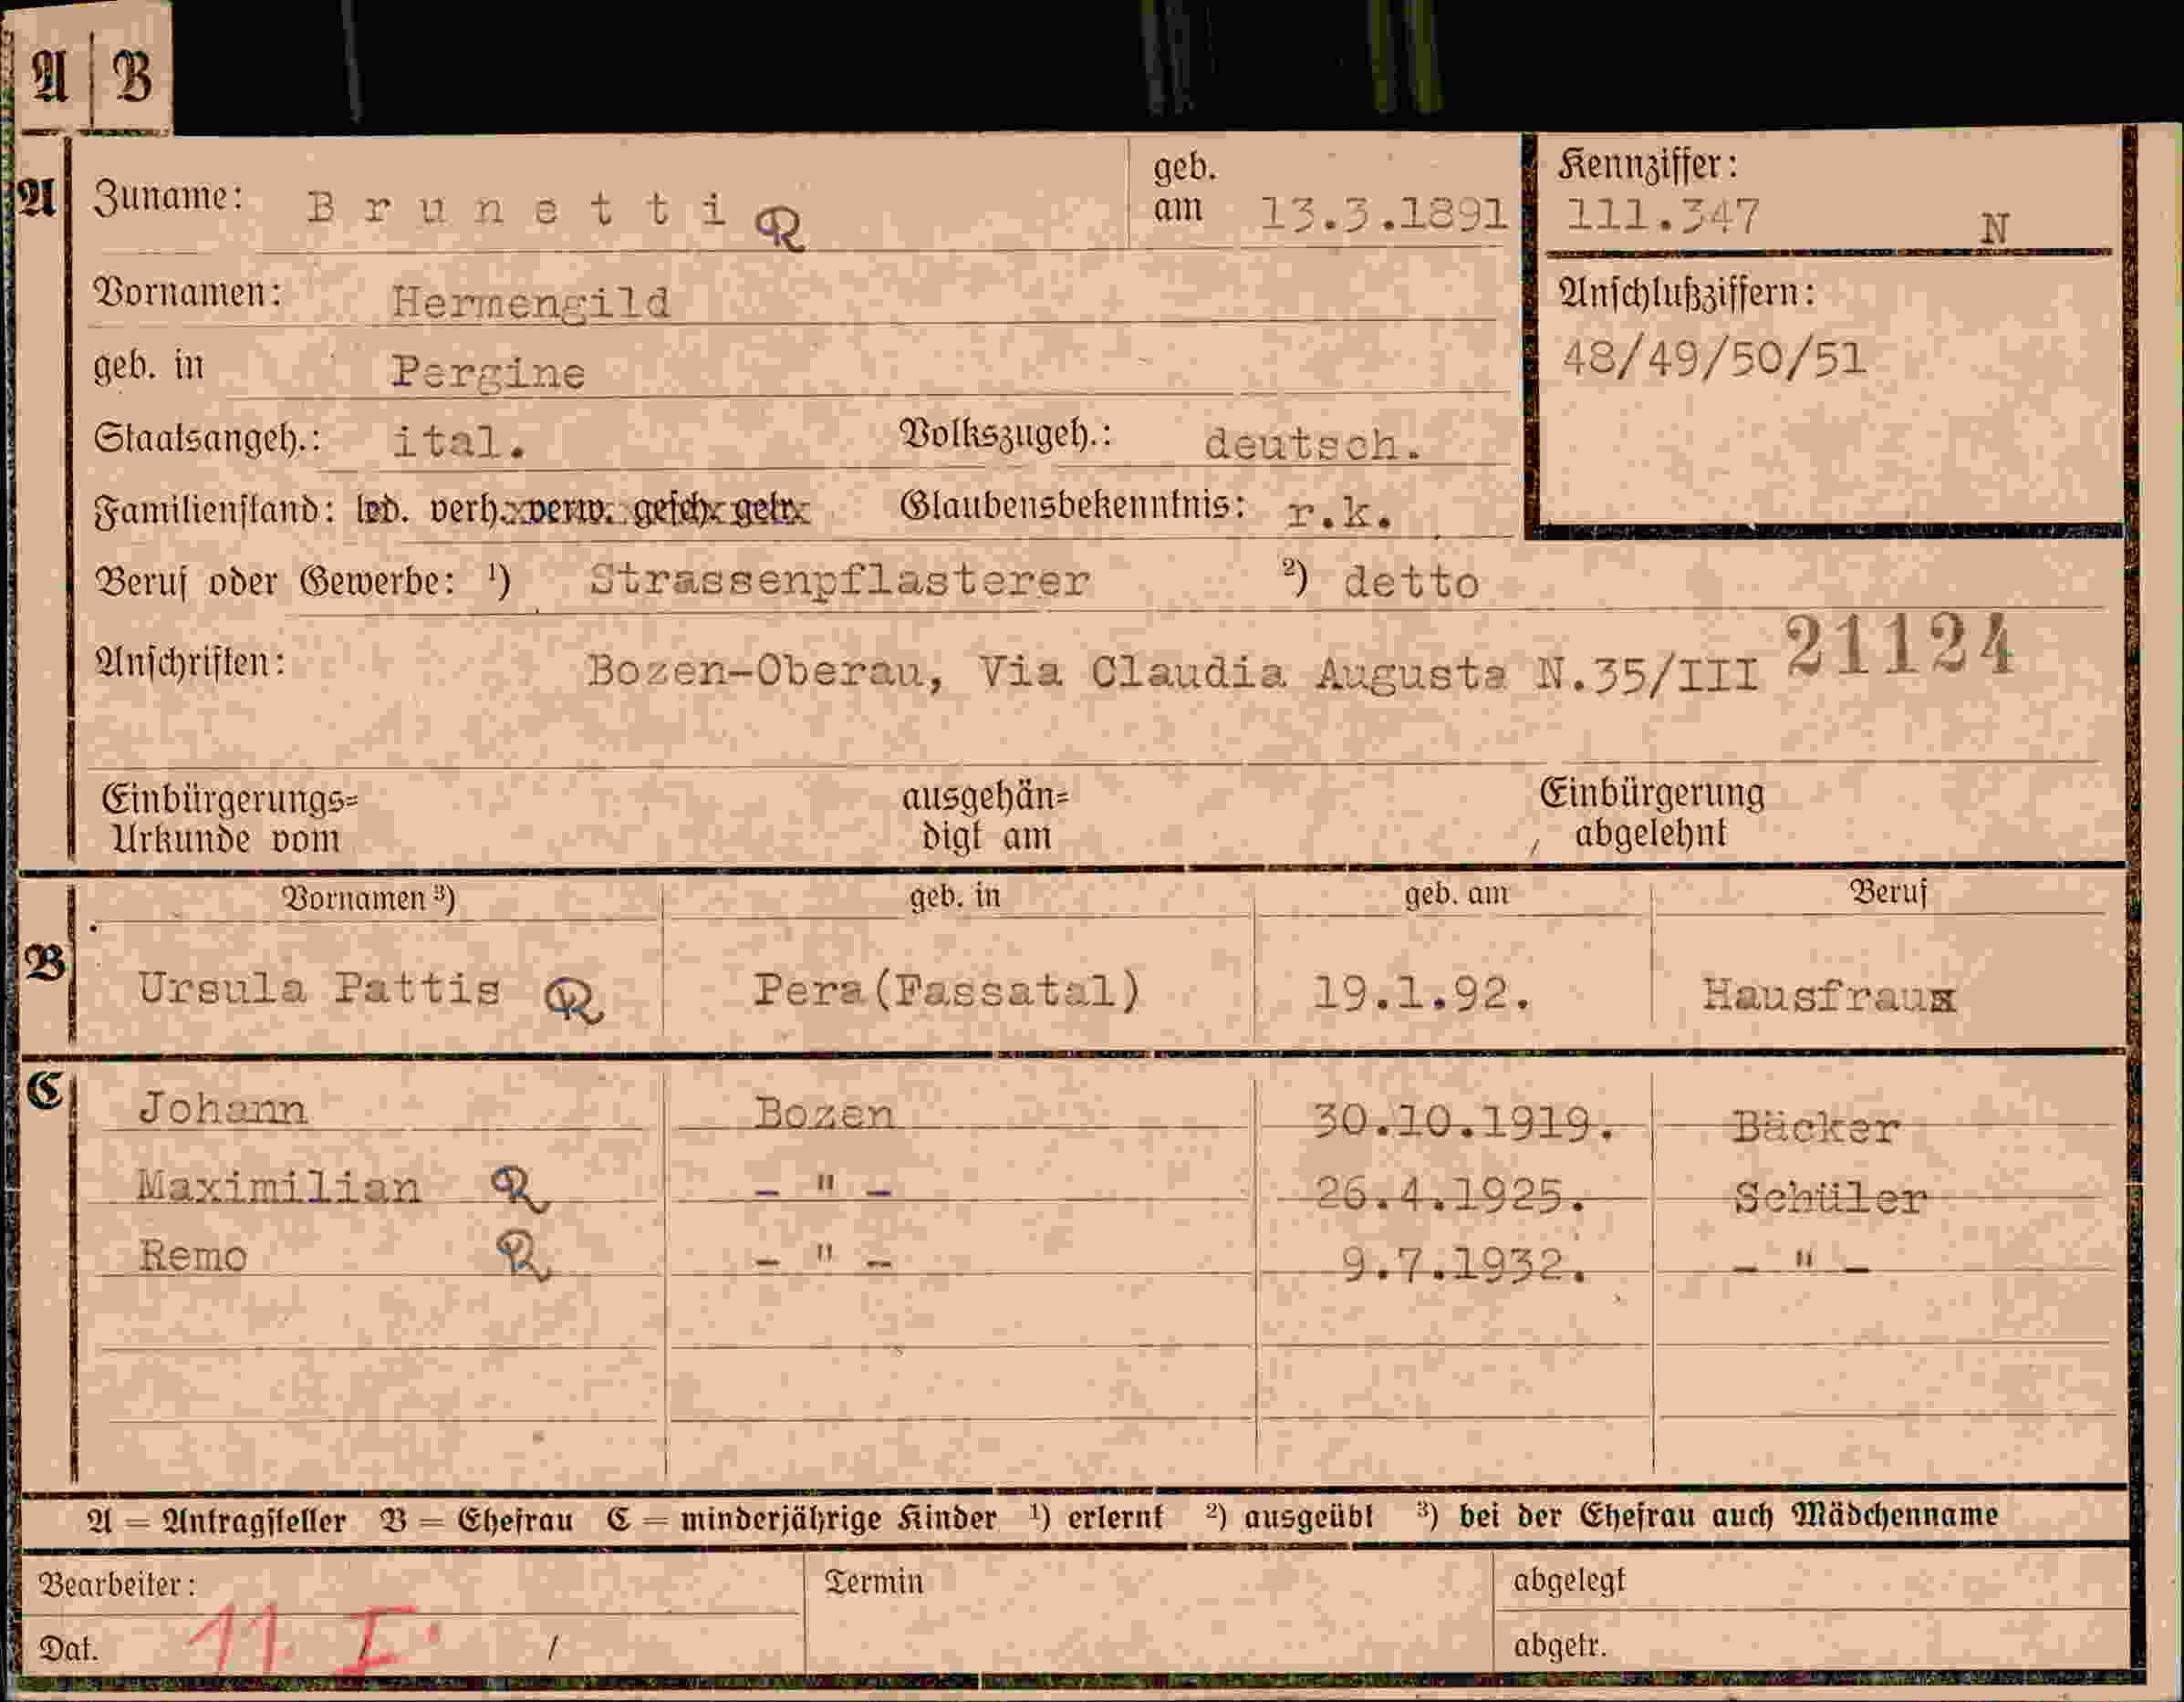 A | B
A Zuname: Brunetti R geb. am 13.3.1891 Kennziffer: 111.347 N
Vornamen: Hermengild Anschlußziffern:
geb. in Pergine 48/49/50/51
Staatsangeh.: ital. Volkszugeh.: deutsch.
Familienstand: led. verh. verw. gesch. getr. Glaubensbekenntnis: r.k.
Beruf oder Gewerbe: ¹) Strassenpflasterer ²) detto
Anschriften: Bozen-Oberau, Via Claudia Augusta N.35/III 21124
Einbürgerungs= ausgehän= Einbürgerung
Urkunde vom digt am abgelehnt
Vornamen ³) geb. in geb. am Beruf
B Ursula Pattis R Pera(Fassatal) 19.1.92. Hausfrau
C Johann Bozen 30.10.1919. Bäcker
Maximilian R - " - 26.4.1925. Schüler
Remo R - " - 9.7.1932. - " -
A = Antragsteller B = Ehefrau C = minderjährige Kinder ¹) erlernt ²) ausgeübt ³) bei der Ehefrau auch Mädchenname
Bearbeiter: Termin abgelegt
Dat. 11. I. / abgetr.